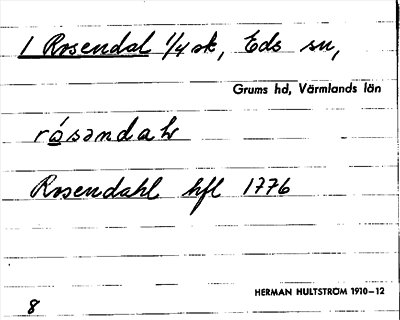 1 Rosendal 1/4 sk, Eds sn,
Grums hd, Värmlands län
rósəndaɫ
Rosendahl hfl 1776
HERMAN HULTSTRÖM 1910–12
8